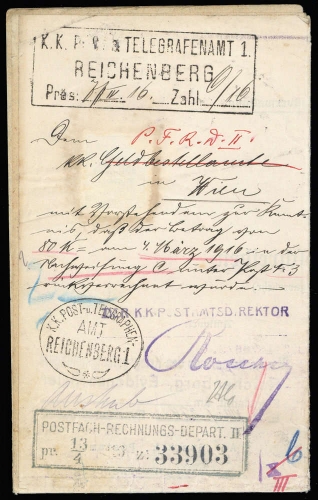 K.K. P. u. TELEGRAFENAMT 1.
REICHENBERG
Präs: 7/III. 16. Zahl 6/16
Dem P. F. R. D. II.
k.k. Geldbestellamte
in Wien
mit Vorstehendem zur Kennt-
nis, daß der Betrag von
80 K am 4. März 1916 in der
Nachweisung C unter Post № 3
verrechnet wurde.
DER K.K. POSTAMTSDIREKTOR
K.K. POST- u. TELEGRAPHEN-
AMT
REICHENBERG 1
POSTFACH-RECHNUNGS-DEPART. II
pr. 13/4 Z: 33903
III